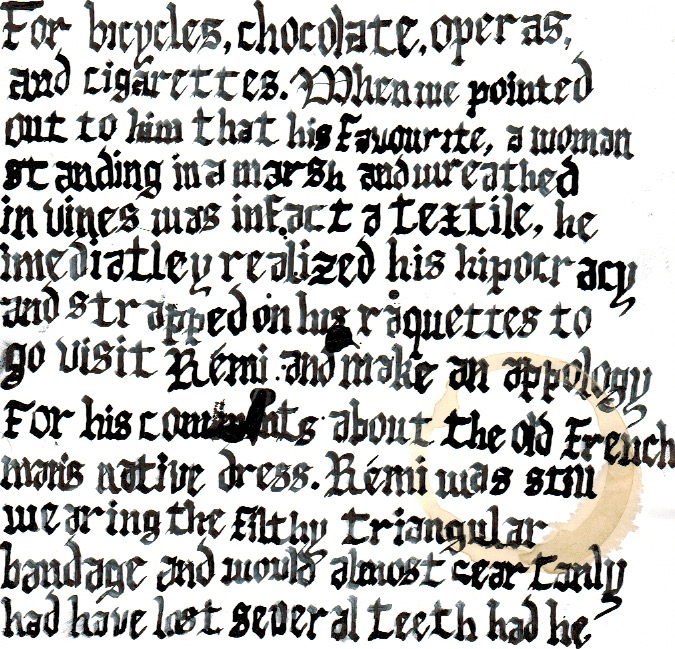 For bicycles, chocolate, operas,
and cigarettes. When we pointed
out to him that his favourite, a woman
standing in a marsh and wreathed
in vines was infact a textile, he
imediatley realized his hipocracy
and strapped on his raquettes to
go visit Rémi and make an appology
For his comments about the old French
man's native dress. Rémi was still
wearing the filthy triangular
bandage and would almost ceartanly
had have lost several teeth had he